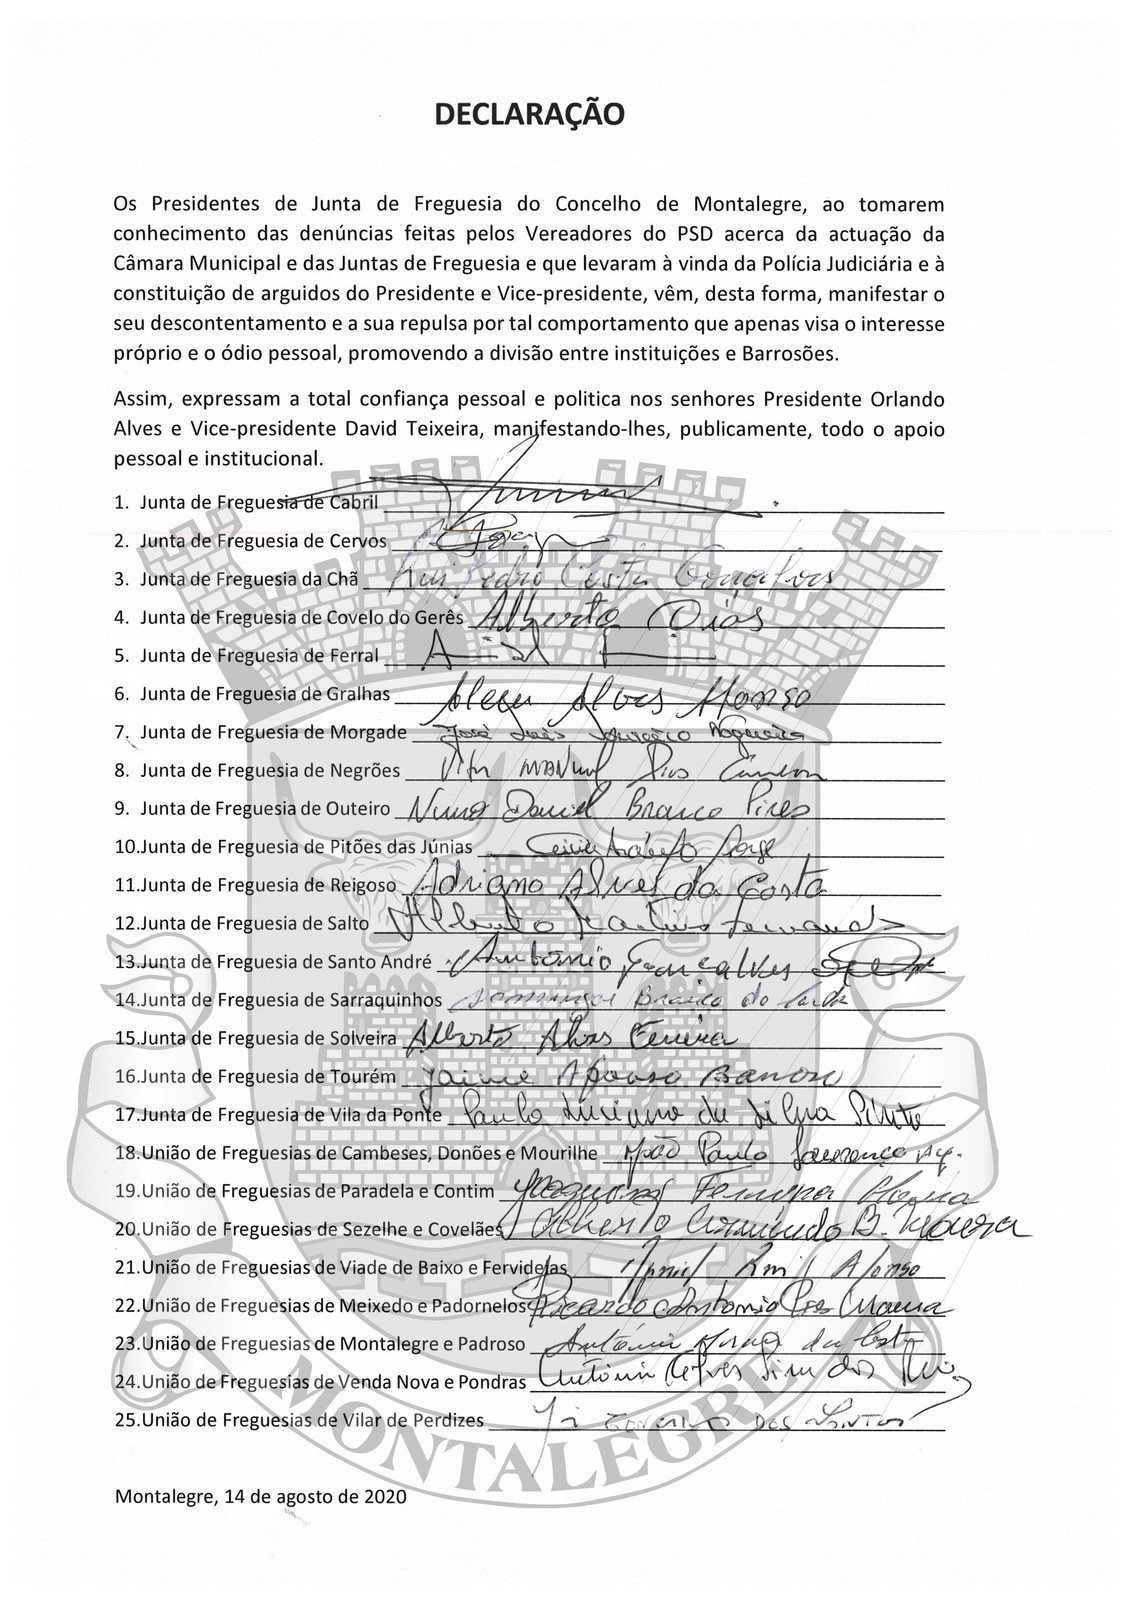 DECLARAÇÃO
Os Presidentes de Junta de Freguesia do Concelho de Montalegre, ao tomarem
conhecimento das denúncias feitas pelos Vereadores do PSD acerca da actuação da
Câmara Municipal e das Juntas de Freguesia e que levaram à vinda da Polícia Judiciária e à
constituição de arguidos do Presidente e Vice-presidente, vêm, desta forma, manifestar o
seu descontentamento e a sua repulsa por tal comportamento que apenas visa o interesse
próprio e o ódio pessoal, promovendo a divisão entre instituições e Barrosões.
Assim, expressam a total confiança pessoal e politica nos senhores Presidente Orlando
Alves e Vice-presidente David Teixeira, manifestando-lhes, publicamente, todo o apoio
pessoal e institucional.
1. Junta de Freguesia de Cabril
2. Junta de Freguesia de Cervos
3. Junta de Freguesia da Chã Luis Pedro Costa Gonçalves
4. Junta de Freguesia de Covelo do Gerês Alberto Dias
5. Junta de Freguesia de Ferral
6. Junta de Freguesia de Gralhas Alves Afonso
7. Junta de Freguesia de Morgade José Luís Nogueira
8. Junta de Freguesia de Negrões Vitor Manuel
9. Junta de Freguesia de Outeiro Nuno Daniel Branco Pires
10.Junta de Freguesia de Pitões das Júnias Jorge
11.Junta de Freguesia de Reigoso Adriano Alves da Costa
12.Junta de Freguesia de Salto Alberto Martins Fernandes
13.Junta de Freguesia de Santo André António Gonçalves
14.Junta de Freguesia de Sarraquinhos Domingos Branco do
15.Junta de Freguesia de Solveira Alberto Alves Ferreira
16.Junta de Freguesia de Tourém Jaime Afonso Barroso
17.Junta de Freguesia de Vila da Ponte Paulo Luciano da Silva Pinto
18.União de Freguesias de Cambeses, Donões e Mourilhe João Paulo Lourenço
19.União de Freguesias de Paradela e Contim Ferreira Moura
20.União de Freguesias de Sezelhe e Covelães Alberto Armindo B. Moura
21.União de Freguesias de Viade de Baixo e Fervidelas Afonso
22.União de Freguesias de Meixedo e Padornelos Ricardo António Moura
23.União de Freguesias de Montalegre e Padroso António da Costa
24.União de Freguesias de Venda Nova e Pondras António Alves dos
25.União de Freguesias de Vilar de Perdizes dos Santos
MONTALEGRE
Montalegre, 14 de agosto de 2020